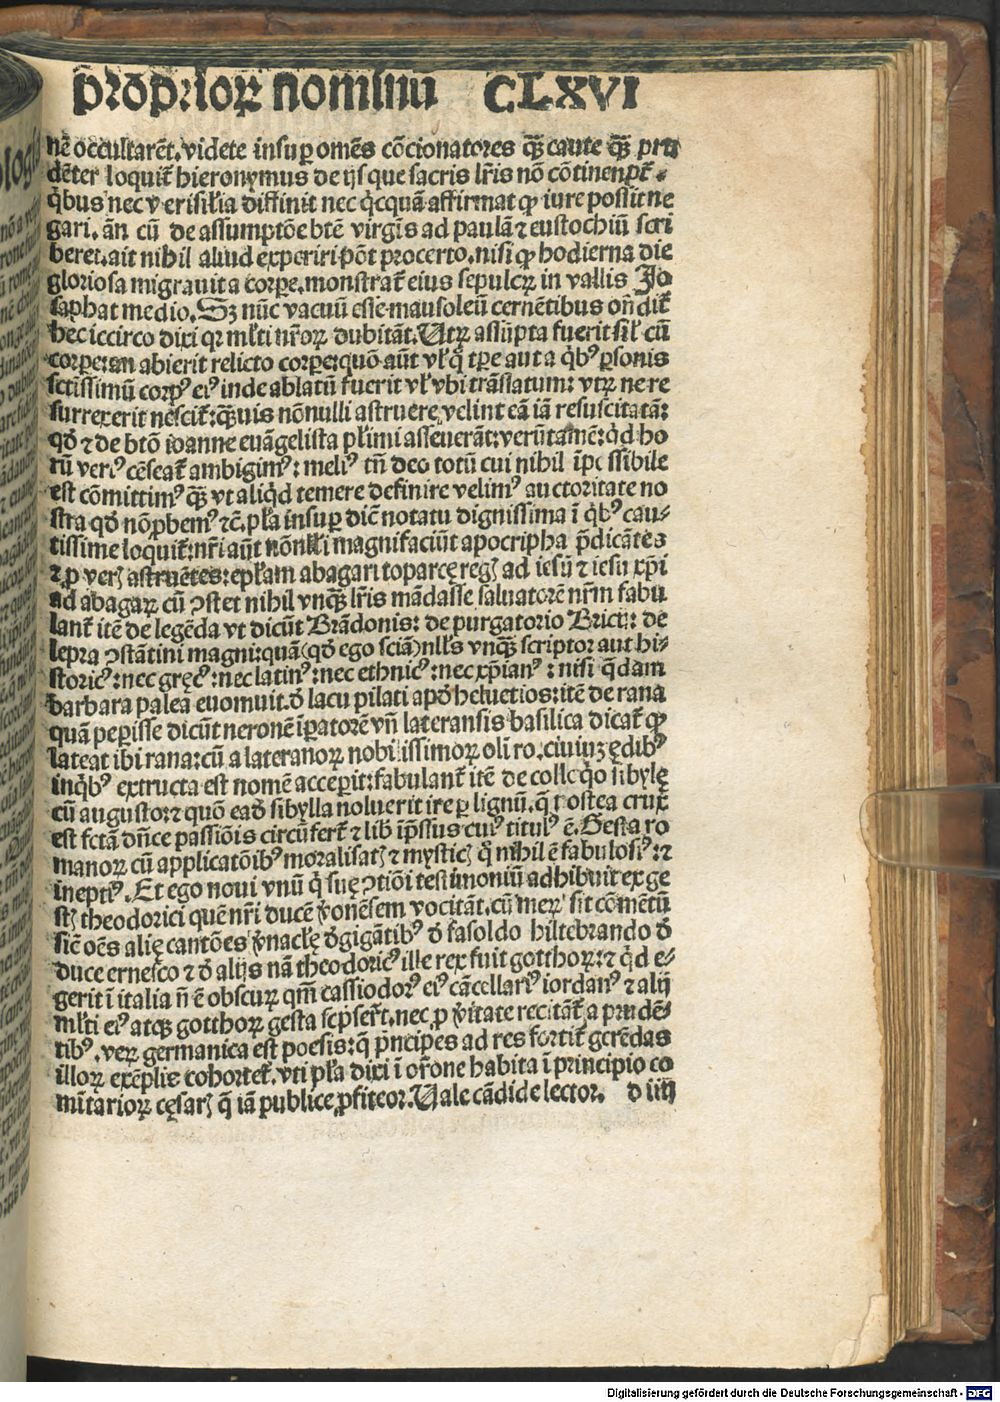 p̄rop̄rioꝝ nominū CLXVI
nē occultarēt. videte insuꝑ omēs cōcionatores qꝫ caute qꝫ pru
dēter loquit̄ hieronymus de ijs que sacris lr̄is nō cōtinent̄.
q̇bus nec verisilia diffinit nec q̇cquā affirmat ꝙ iure possit ne
gari. ān cū de assumptōe btē virgīs ad paulā ⁊ eustochiū scri
beret. ait nihil aliud experiri pōt procerto. nisi ꝙ hodierna die
gloriosa migrauit a corpe. monstrat̄ eius sepulcꝝ in vallis Jo
saphat medio. Sꝫ nūc vacuū esse mausoleū cernētibus on̄dit̄
hec iccirco dixi qꝛ ml̄ti nr̄oꝝ dubitāt. Utꝝ assūpta fuerit sil̄ cū
corpe: an abierit relicto corpe: quō aūt vl̄ q̇ tꝑe aut a q̇bꝰ ꝑsonis
sctissimū corpꝰ eiꝰ inde ablatū fuerit vl̄ vbi trāslatum: vtꝝ ne re
surrexerit nescit̄: qꝫuis nōnulli astruere velint eā iā resuscitatā:
qd̄ ⁊ de btō ioanne euāgelista pl̄imi asseuerāt: verūtamē: qd̄ ho
rū veriꝰ cēseat̄ ambigimꝰ: meliꝰ tn̄ deo totū cui nihil īpossibile
est cōmittimꝰ qꝫ vt aliqd̄ temere definire velimꝰ auctoritate no
stra qd̄ nō ꝓbemꝰ ⁊c̄. pl̄a insuꝑ dic̄ notatu dignissima ī q̇bꝰ cau
tissime loquit̄: nr̄i aūt nōnl̄li magnifaciūt apocripha p̄dicātes
⁊ ꝓ verꝭ astruētes: epl̄am abagari toparcę regꝭ ad iesū ⁊ iesu xp̄i
ad abagaꝝ cū ꝯstet nihil vnqꝫ lr̄is mādasse saluatorē nr̄m fabu
lant̄ itē de legēda vt dicūt Brādonis: de purgatorio Bricij: de
lepra ꝯstātini magni: quā (qd̄ ego sciā) nll̄s vnqꝫ scriptor aut hi
storicꝰ: nec gręcꝰ: nec latinꝰ: nec ethnicꝰ: nec xp̄ianꝰ: nisi q̄dam
barbara palea euomuit. d̄ lacu pilati apd̄ heluetios: itē de rana
quā peperisse dicūt neronē īperatorē vn̄ lateransis basilica dicat̄ ꝙ
lateat ibi rana: cū a lateranoꝝ nobilissimoꝝ oli ro. ciuiuꝫ ędibꝰ
inq̇bꝰ extructa est nomē acceperit: fabulant̄ itē de colloq̇o sibylę
cū augusto: ⁊ quō ead̄ sibylla noluerit ire per lignū. q̄ postea crux
est fctā dn̄ice passiōis circūfert̄ ⁊ lib īpressus cuiꝰ titulꝰ ē. Gesta ro
manoꝝ cū applicatōibꝰ moralisatꝭ ⁊ mysticꝭ q̇ nihil ē fabulosiꝰ: ⁊
ineptiꝰ. Et ego noui vnū q̇ suę ꝯtiōi testimoniū adhibuit ex ge
stꝭ theodorici quē nr̄i ducē v̄onēsem vocitāt. cū meꝝ sit cōmētū
sicē oēs alię cantōes v̄naclę d̄ gigātibꝰ d̄ fasoldo hiltebrando d̄
duce ernesco ⁊ d̄ alijs nā theodoricꝰ ille rex fuit gotthoꝝ: ⁊ qd̄ e-
gerit ī italia n̄ ē obscuꝝ qm̄ cassiodorꝰ eiꝰ cācellariꝰ iordanꝰ ⁊ alij
ml̄ti eiꝰ atqꝫ gotthoꝝ gesta scp̄ser̄t. nec ꝓ v̄itate recitāt̄ a prudē-
tibꝰ. veꝝ germanica est poesis: q̄ p̄ncipes ad res fortit̄ gerēdas
illoꝝ exēplis cohortet̄. vti pl̄a dixi ī or̄one habita ī principio co
mītarioꝝ cęsarꝭ q̄ iā publice ꝓfiteor. Vale cādide lector. d iiij
Digitalisierung gefördert durch die Deutsche Forschungsgemeinschaft - DFG